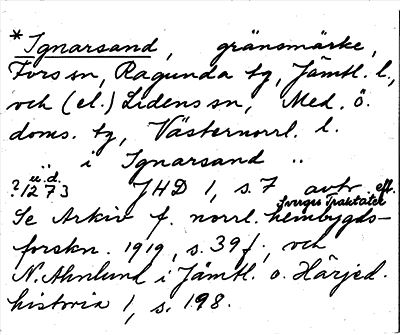 *Ignarsand, gränsmärke,
Fors sn, Ragunda tg, Jämtl. l.,
och (el.) Lidens sn, Med. ö.
doms. tg, Västernorrl. l.
.. i Ignarsand ..
u.d.
?1273 JHD 1, s. 7 avtr. eft.
Sveriges Traktater
Se Arkiv f. norrl. hembygds-
forskn. 1919, s. 39 f., och
N. Ahnlund i Jämtl. o. Härjed.
historia 1, s. 198.